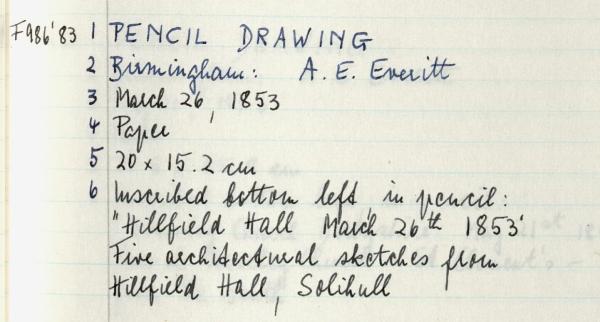 F986'83 1 PENCIL DRAWING
2 Birmingham: A. E. Everitt
3 March 26, 1853
4 Paper
5 20 x 15.2 cm
6 Inscribed bottom left in pencil:
"Hillfield Hall March 26th 1853'
Five architectural sketches from
Hillfield Hall, Solihull